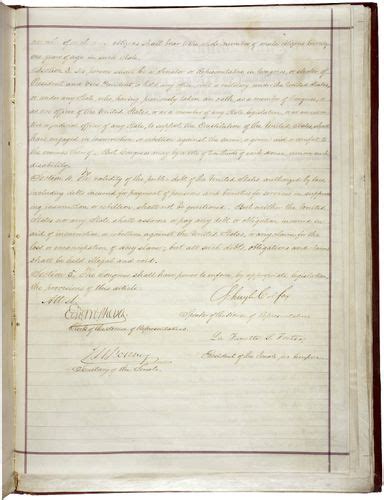 number of such male citizens shall bear to the whole number of male citizens twenty-
one years of age in such State.
Section 3. No person shall be a Senator or Representative in Congress, or elector of
President and Vice President, or hold any office, civil or military, under the United States,
or under any State, who, having previously taken an oath, as a member of Congress, or
as an officer of the United States, or as a member of any State legislature, or as an execu-
tive or judicial officer of any State, to support the Constitution of the United States, shall
have engaged in insurrection or rebellion against the same, or given aid or comfort to
the enemies thereof. But Congress may by a vote of two-thirds of each House, remove such
disability.
Section 4. The validity of the public debt of the United States, authorized by law,
including debts incurred for payment of pensions and bounties for services in suppress-
ing insurrection or rebellion, shall not be questioned. But neither the United
States nor any State shall assume or pay any debt or obligation incurred in
aid of insurrection or rebellion against the United States, or any claim for the
loss or emancipation of any slave; but all such debts, obligations and claims
shall be held illegal and void.
Section 5. The Congress shall have power to enforce, by appropriate legislation,
the provisions of this article.
Attest,
Schuyler Colfax
Edwd McPherson
Speaker of the House of Representatives.
Clerk of the House of Representatives.
La Fayette S. Foster
J. W. Forney
President of the Senate pro tempore.
Secretary of the Senate.